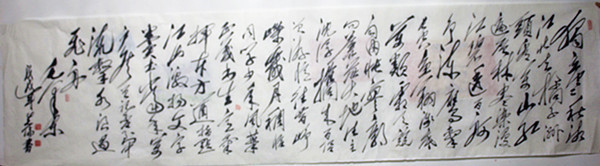 独立寒秋湘
江北去橘子洲
头看万山红
遍层林尽染漫
江碧透百舸
争流鹰击
长空鱼翔浅底
万类霜天竞
自由怅寥廓
问苍茫大地谁主
沉浮携来百侣
曾游忆往昔峥
嵘岁月稠恰
同学少年风华
正茂书生意气
挥斥方遒指点
江山激扬文字
粪土当年万
户侯曾记否到中
流击水浪遏
飞舟
毛泽东